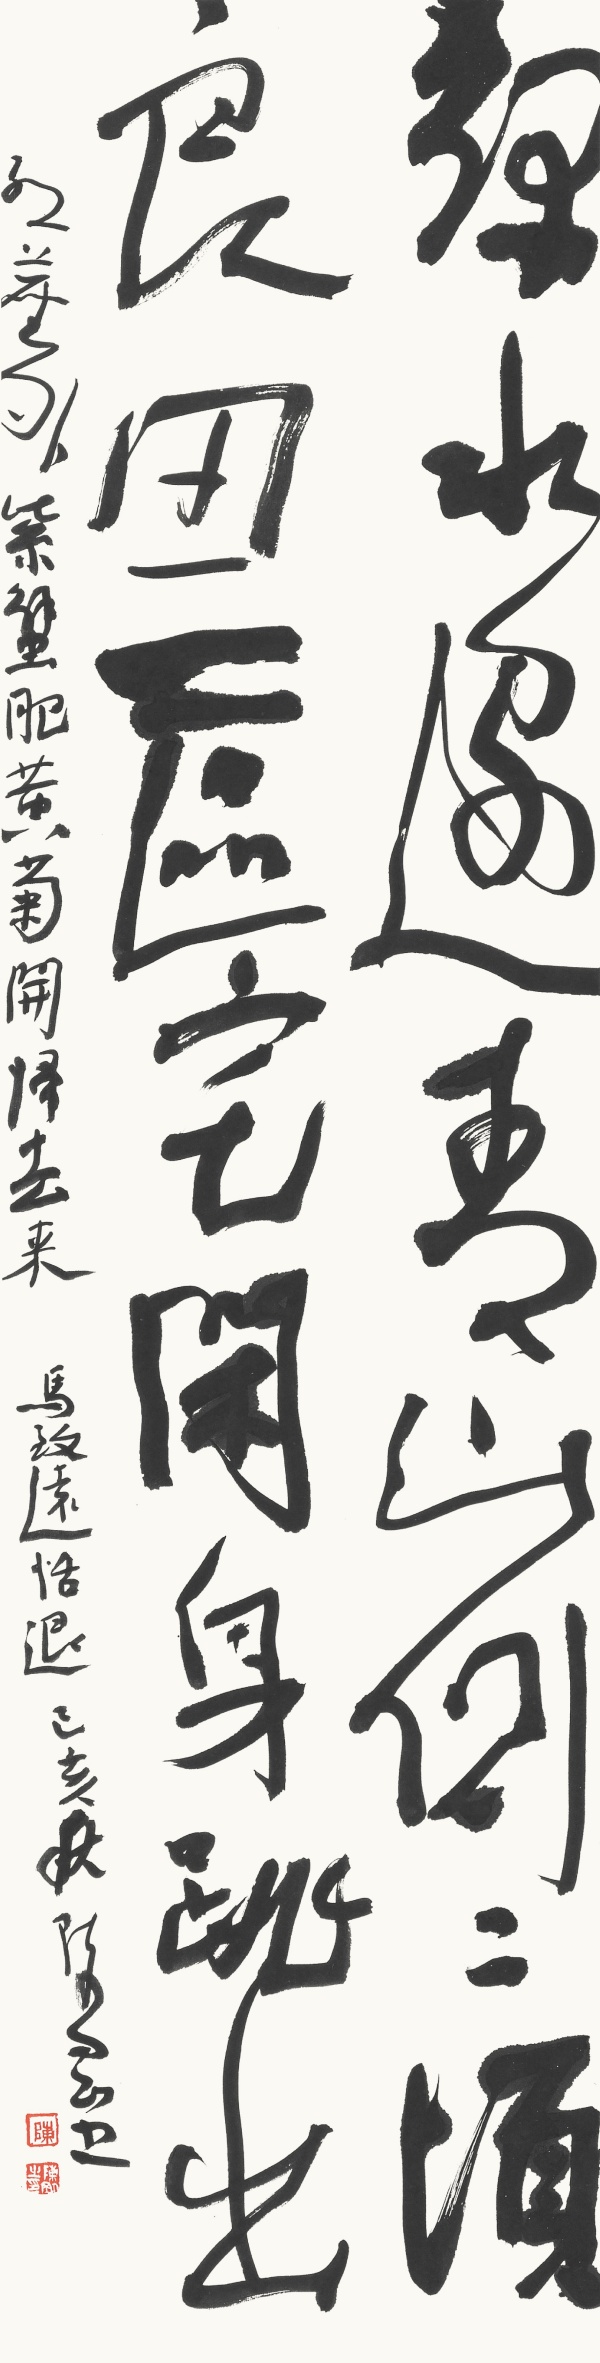 綠水邊青山側二頃
良田一區宅閑身跳出
紅塵外紫蟹肥黄菊開歸去来 馬致遠恬退 己亥秋 陳
陳